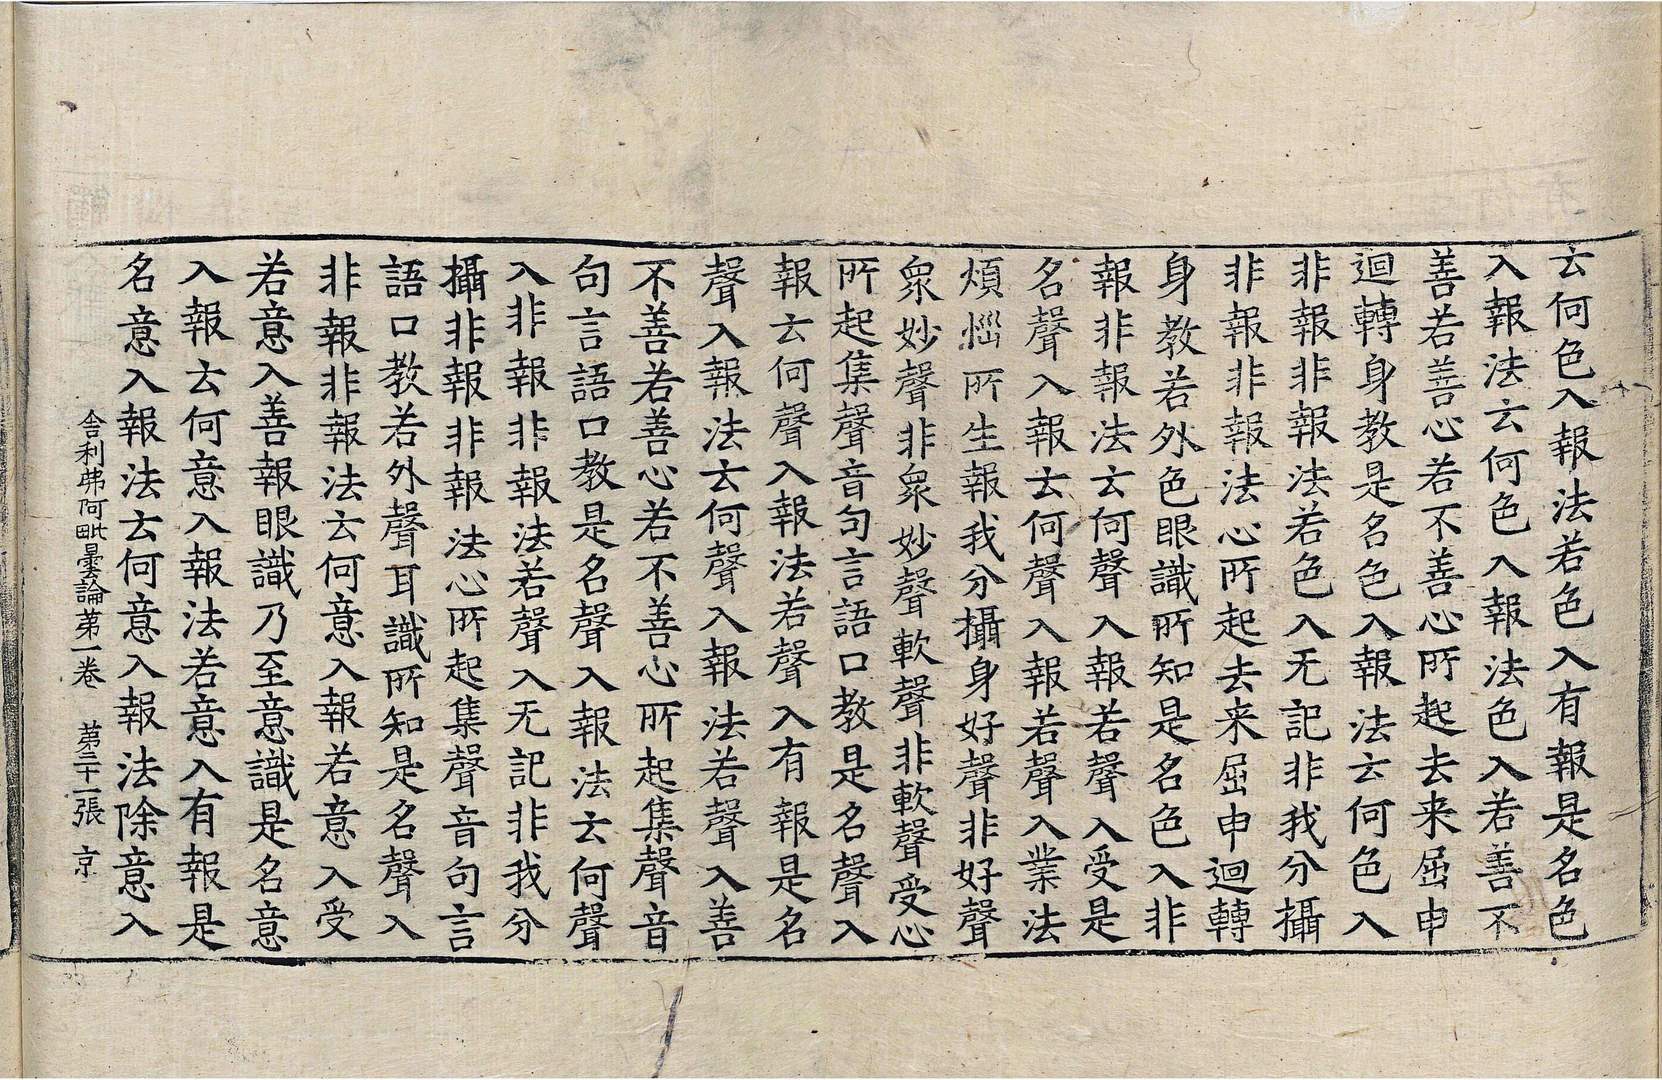 云何色入報法若色入有報是名色
入報法云何色入報法色入若善不
善若善心若不善心所起去来屈申
迴轉身教是名色入報法云何色入
非報非報法若色入无記非我分攝
非報非報法心所起去来屈申迴轉
身教若外色眼識所知是名色入非
報非報法云何聲入報若聲入受是
名聲入報云何聲入報若聲入業法
煩惱所生報我分攝身好聲非好聲
衆妙聲非衆妙聲軟聲非軟聲受心
所起集聲音句言語口教是名聲入
報云何聲入報法若聲入有報是名
聲入報法云何聲入報法若聲入善
不善若善心若不善心所起集聲音
句言語口教是名聲入報法云何聲
入非報非報法若聲入无記非我分
攝非報非報法心所起集聲音句言
語口教若外聲耳識所知是名聲入
非報非報法云何意入報若意入受
若意入善報眼識乃至意識是名意
入報云何意入報法若意入有報是
名意入報法云何意入報法除意入
舍利弗阿毗曇論第一卷 第二十一張 京